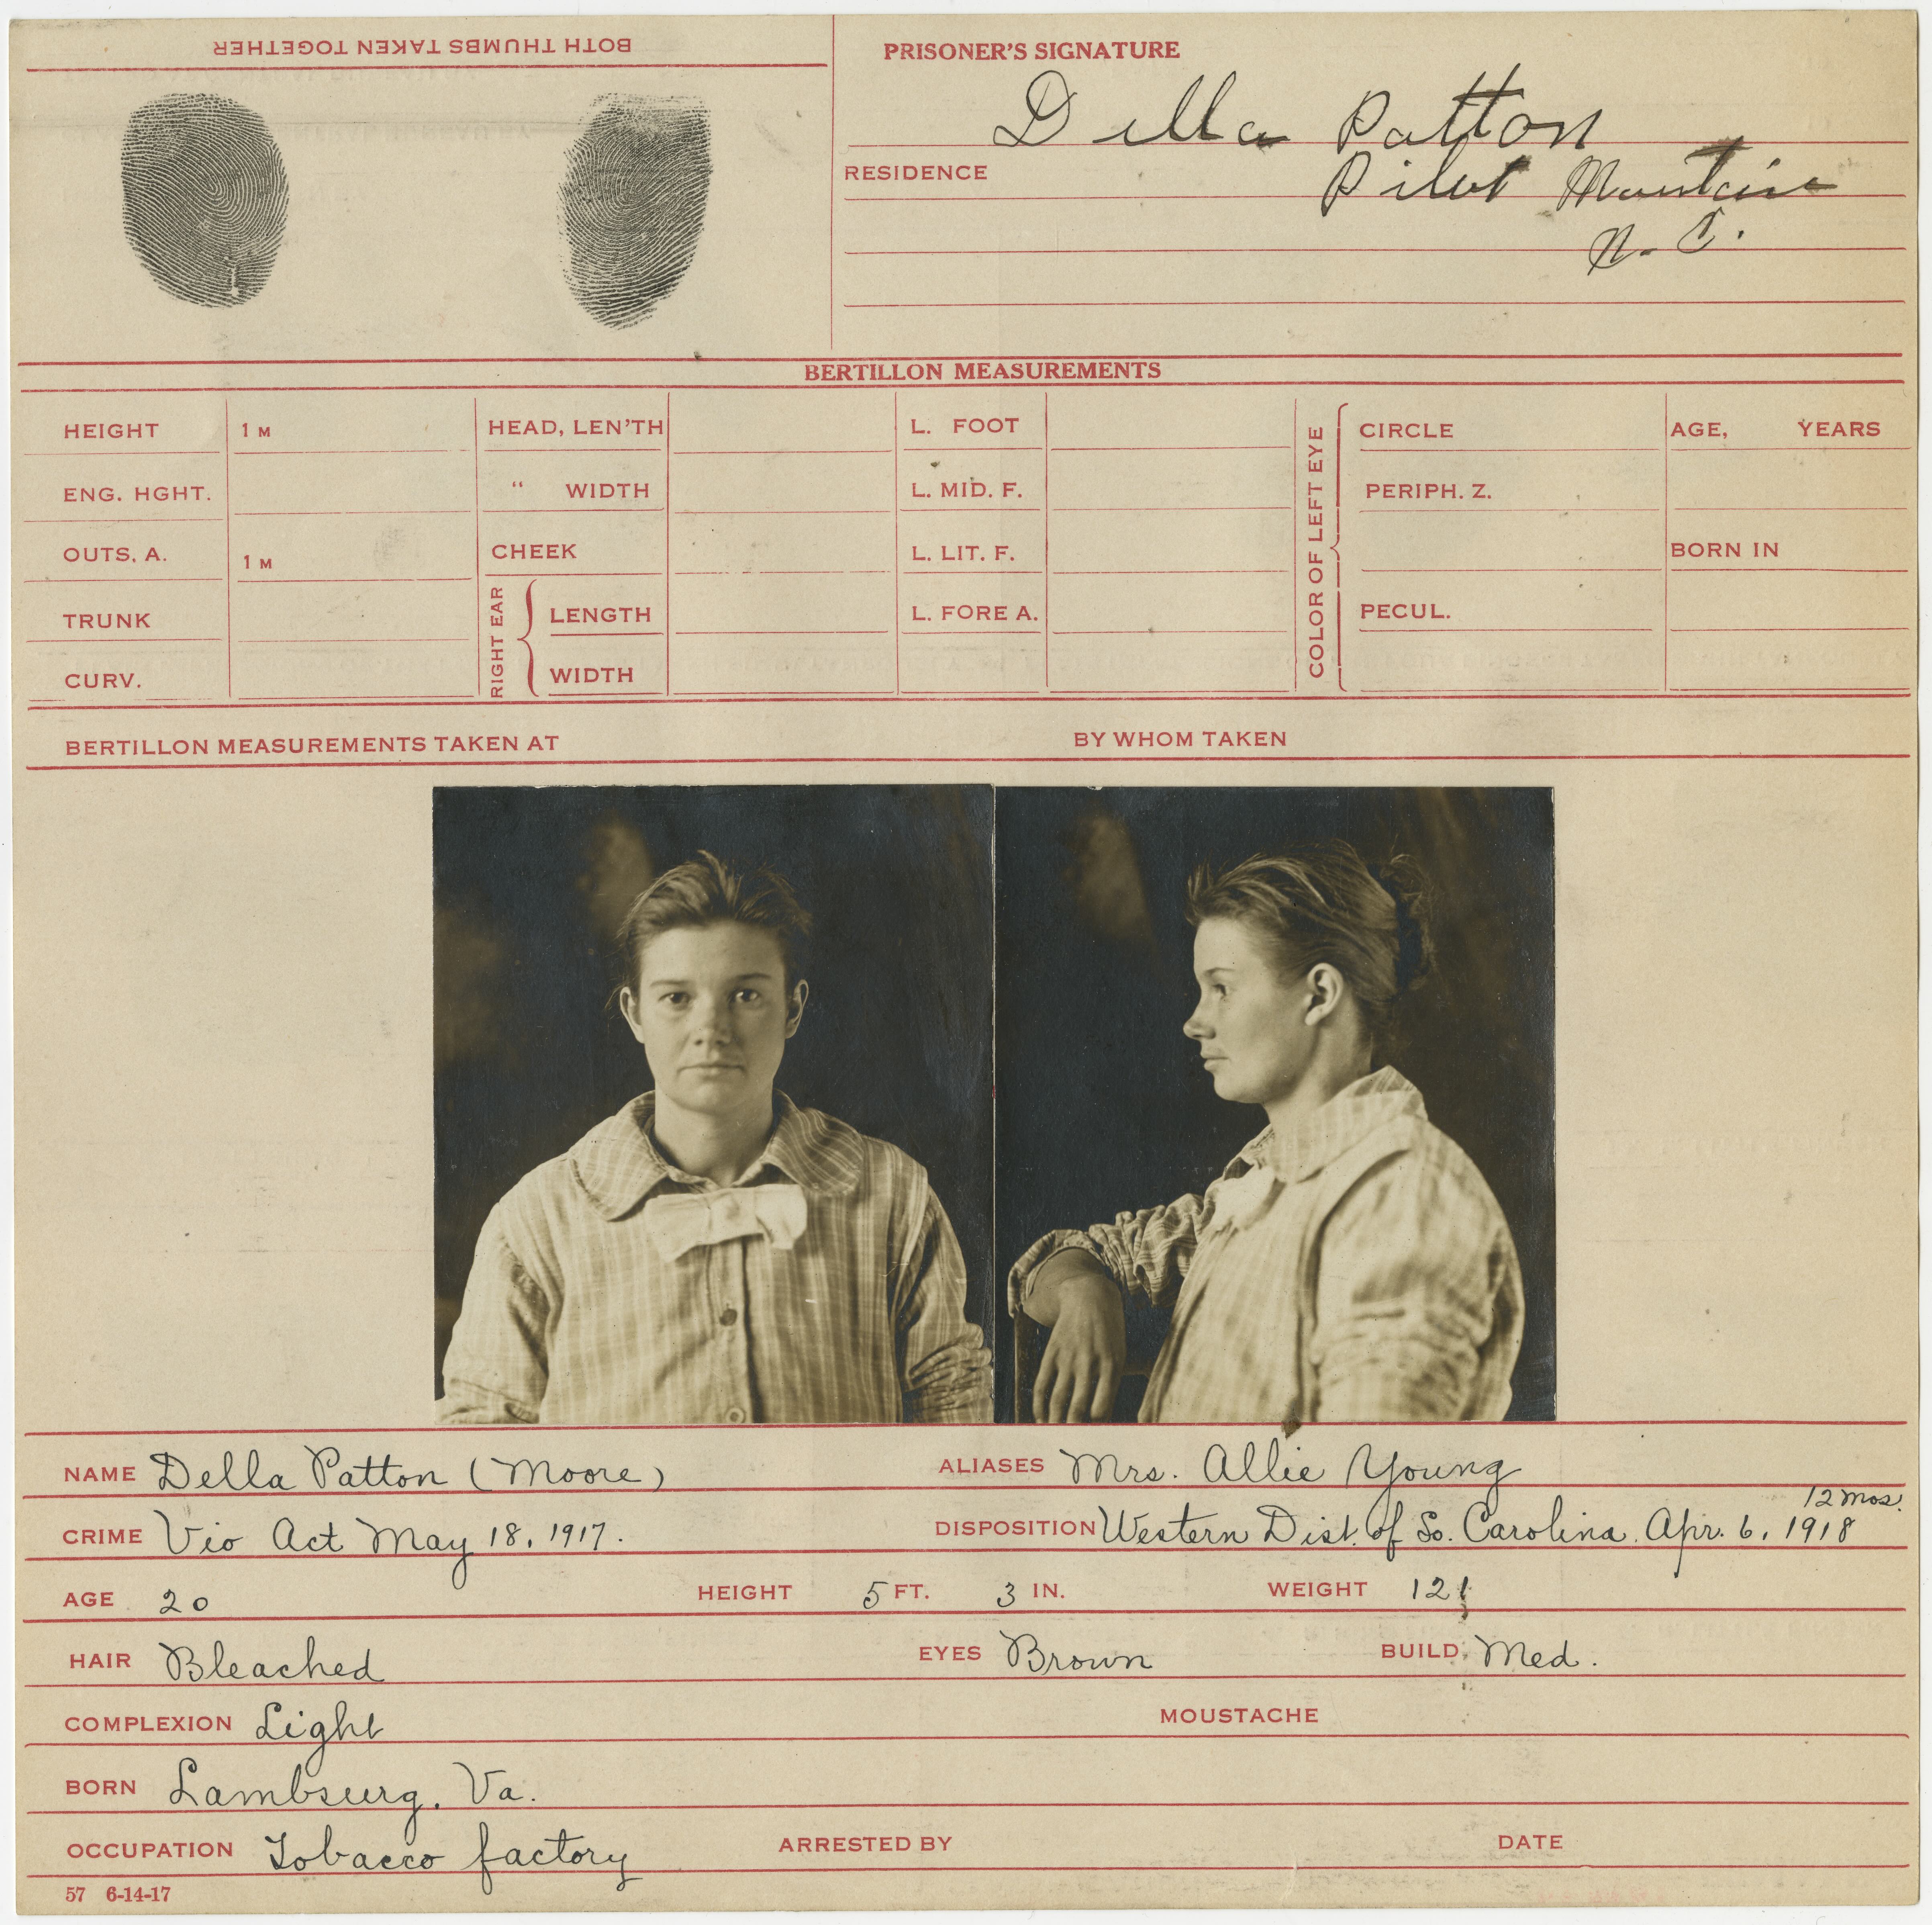 BOTH THUMBS TAKEN TOGETHER
PRISONER'S SIGNATURE
Della Patton
RESIDENCE Pilot Mountain
N. C.
BERTILLON MEASUREMENTS
HEIGHT 1 M HEAD, LEN'TH L. FOOT CIRCLE AGE, YEARS
ENG. HGHT. " WIDTH L. MID. F. PERIPH. Z.
OUTS, A. 1 M CHEEK L. LIT. F. BORN IN
TRUNK LENGTH L. FORE A. PECUL.
CURV. WIDTH
RIGHT EAR
COLOR OF LEFT EYE
BERTILLON MEASUREMENTS TAKEN AT BY WHOM TAKEN
NAME Della Patton (Moore) ALIASES Mrs. Allie Young
12 Mos.
CRIME Vio Act May 18, 1917. DISPOSITION Western Dist. of So. Carolina. Apr. 6, 1918
AGE 20 HEIGHT 5 FT. 3 IN. WEIGHT 121
HAIR Bleached EYES Brown BUILD Med.
COMPLEXION Light MOUSTACHE
BORN Lambsurg. Va.
OCCUPATION Tobacco factory ARRESTED BY DATE
57 6-14-17